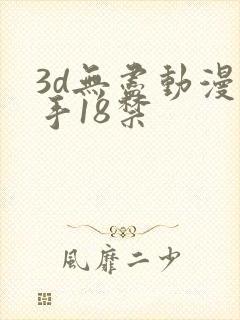 3d無盡動漫
手18禁
風靡二少